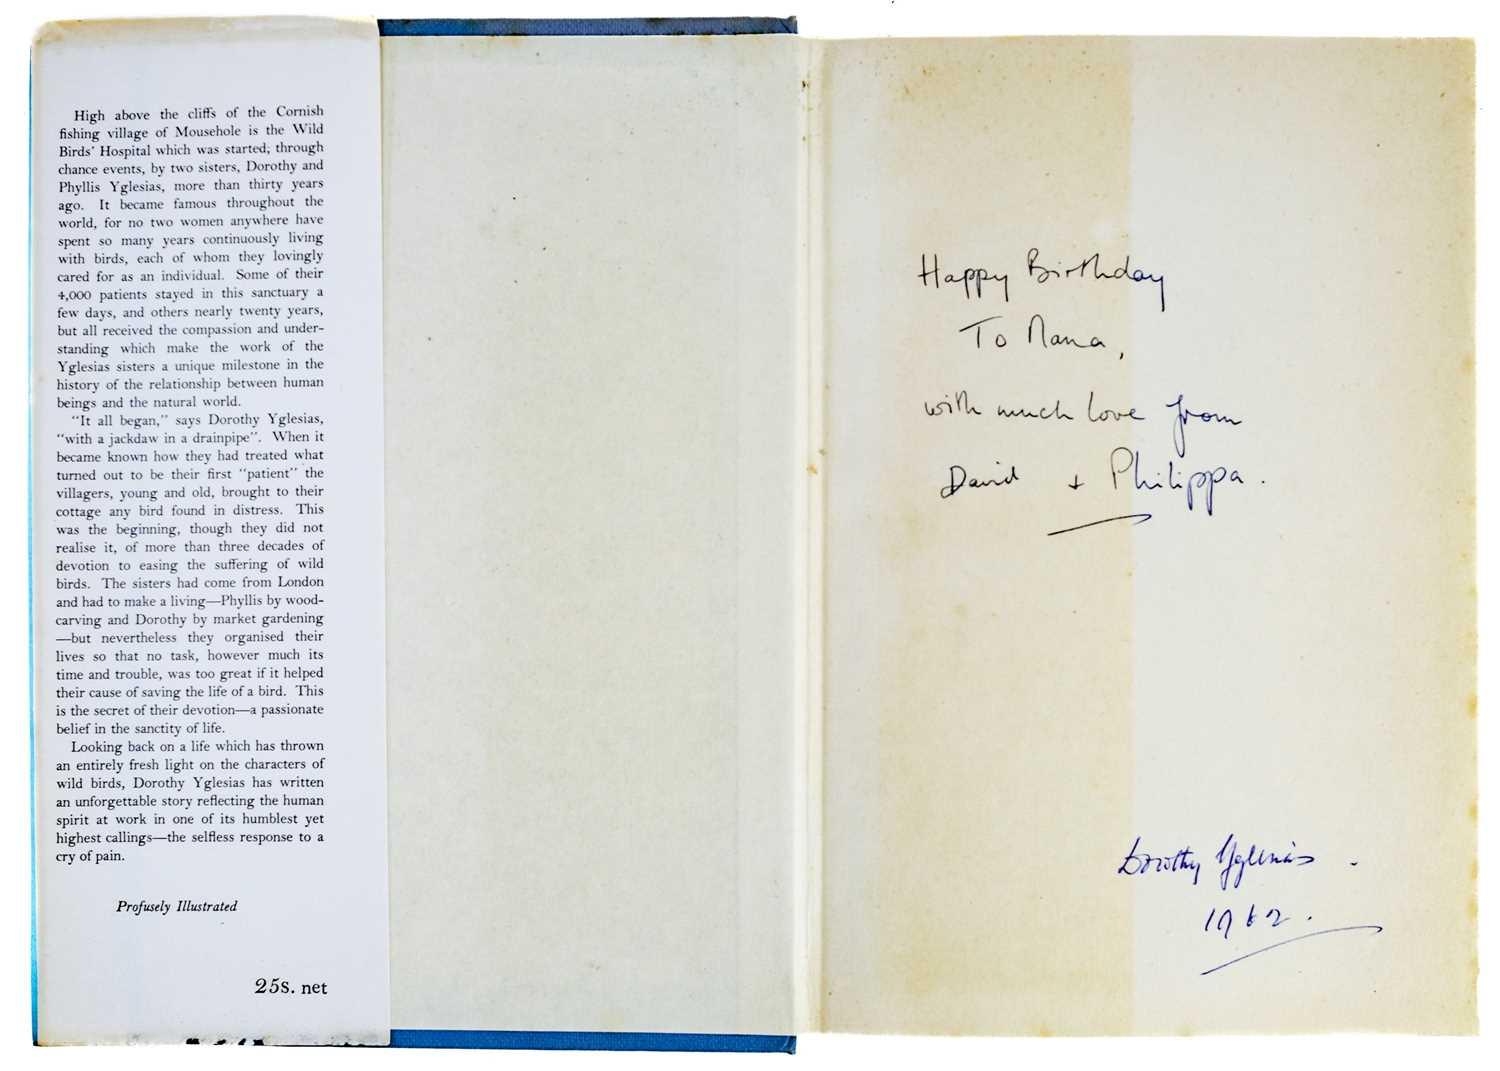 High above the cliffs of the Cornish
fishing village of Mousehole is the Wild
Birds' Hospital which was started, through
chance events, by two sisters, Dorothy and
Phyllis Yglesias, more than thirty years
ago. It became famous throughout the
world, for no two women anywhere have
spent so many years continuously living
with birds, each of whom they lovingly
cared for as an individual. Some of their
4,000 patients stayed in this sanctuary a
few days, and others nearly twenty years,
but all received the compassion and under-
standing which make the work of the
Yglesias sisters a unique milestone in the
history of the relationship between human
beings and the natural world.
"It all began," says Dorothy Yglesias,
"with a jackdaw in a drainpipe". When it
became known how they had treated what
turned out to be their first "patient" the
villagers, young and old, brought to their
cottage any bird found in distress. This
was the beginning, though they did not
realise it, of more than three decades of
devotion to easing the suffering of wild
birds. The sisters had come from London
and had to make a living—Phyllis by wood-
carving and Dorothy by market gardening
—but nevertheless they organised their
lives so that no task, however much its
time and trouble, was too great if it helped
their cause of saving the life of a bird. This
is the secret of their devotion—a passionate
belief in the sanctity of life.
Looking back on a life which has thrown
an entirely fresh light on the characters of
wild birds, Dorothy Yglesias has written
an unforgettable story reflecting the human
spirit at work in one of its humblest yet
highest callings—the selfless response to a
cry of pain.
Profusely Illustrated
25s. net
Happy Birthday
To Nana,
with much love from
David + Philippa.
Dorothy Yglesias.
1962.